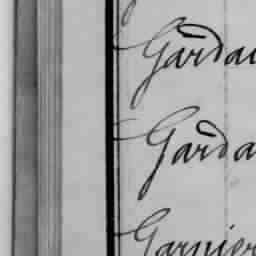 Gardai
Garda
Garnier